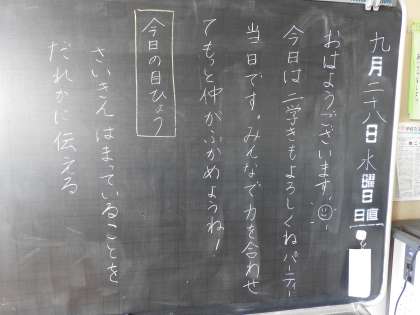 九月二十八日水曜日
日直
おはようございます。
今日は二学きもよろしくねパーティー
当日です。みんなで力を合わせ
てもっと仲がふかめようね!
今日の目ひょう
さいきんはまっていることを
だれかに伝える